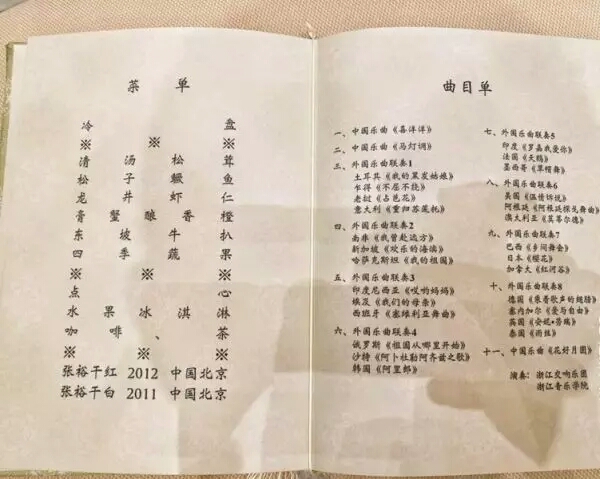 菜 单
冷 盘
※ ※ ※
清 汤 松 茸
松 子 鳜 鱼
龙 井 虾 仁
膏 蟹 酿 香 橙
东 坡 牛 扒
四 季 蔬 果
※ ※ ※
点 心
水 果 冰 淇 淋
咖 啡 、 茶
※ ※ ※
张裕干红 2012 中国北京
张裕干白 2011 中国北京
曲目单
一、中国乐曲《喜洋洋》
二、中国乐曲《马灯调》
三、外国乐曲联奏1
土耳其《我的黑发姑娘》
乍得《不屈不挠》
老挝《占芭花》
意大利《重归苏莲托》
四、外国乐曲联奏2
南非《我曾赴远方》
新加坡《欢乐的海滨》
哈萨克斯坦《我的祖国》
五、外国乐曲联奏3
印度尼西亚《哎哟妈妈》
埃及《我们的母亲》
西班牙《塞维利亚舞曲》
六、外国乐曲联奏4
俄罗斯《祖国从哪里开始》
沙特《阿卜杜勒阿齐兹之歌》
韩国《阿里郎》
七、外国乐曲联奏5
印度《罗嘉我爱你》
法国《天鹅》
墨西哥《草帽舞》
八、外国乐曲联奏6
美国《温情诉说》
阿根廷《阿根廷探戈舞曲》
澳大利亚《莫蒂尔德》
九、外国乐曲联奏7
巴西《乡间舞会》
日本《樱花》
加拿大《红河谷》
十、外国乐曲联奏8
德国《乘着歌声的翅膀》
塞内加尔《爱与自由》
英国《安妮·劳瑞》
泰国《雨丝》
十一、中国乐曲《花好月圆》
演奏：浙江交响乐团
浙江音乐学院